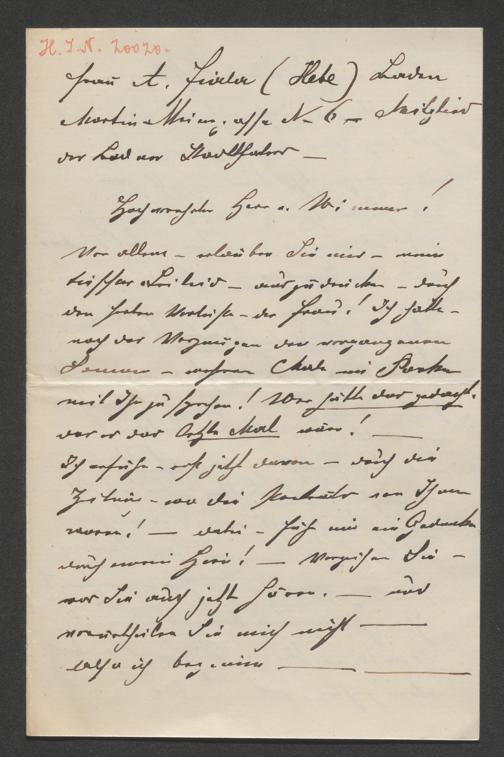 H. I. N. 20020.
Frau A. Fiala (Hebe) Baden
Martin Mein.gasse N– 6 – Mitglied
der Badner Stadttheater –
Hochverehrter Herr v. Wimmer!
Vor allem – erlauben Sie mir – mein
tiefstes Beileid – auszudrücken – durch
den herben Verluste – der Frau! Ich hatte –
noch das Vergnügen den vergangenen
Sommer – mehrere Male im Parke
mit Ihr zu sprechen! Wer hätte das gedacht,
das es das letzte Mal wäre! —
Ich erfuhr – erst jetzt davon – durch die
Zeitung – wo die Portraits von Ihnen
waren! — dabei – fuhr mir ein Gedanke
durch mein Hirn! — Verzeihen Sie –
was Sie auch jetzt hören. — und
verurtheilen Sie mich nicht —
also ich beginne — —